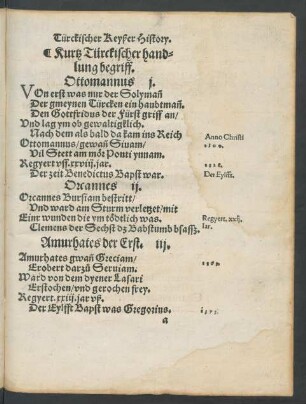 Türckischer Keyser History.
¶ Kurtz Türckischer hand-
lung begriff.
Ottomannus j.
VOn erst was nur der Solyman̄
Der gmeynen Türcken ein haubtman̄.
Den Gottfridus der Fürst griff an/
Vnd lag ym ob gewaltigklich.
Nach dem als bald da kam ins Reich
Anno Christi
Ottomannus/ gewan̄ Siuam/
Vil Stett am mőr Ponti ynnam.
Regyert vff.xxviij.jar.
1328.
Der zeit Benedictus Bapst war.
Der Eylfft.
Orcannes ij.
Orcannes Bursiam bestritt/
Vnd ward am Sturm verletzet/mit
Einr wunden die ym tődtlich was.
Regyert. xxij.
Clemens der Sechst dz Babstumb bsasz.
Jar.
Amurhates der Erst. iij.
Amurhates gwan̄ Greciam/
Erobert darzů Seruiam.
Ward von dem dyener Lasari
Erstochen/vnd gerochen frey.
Regyert.xxiij.jar vsz.
Der Eylfft Bapst was Gregorius.
1373.
a